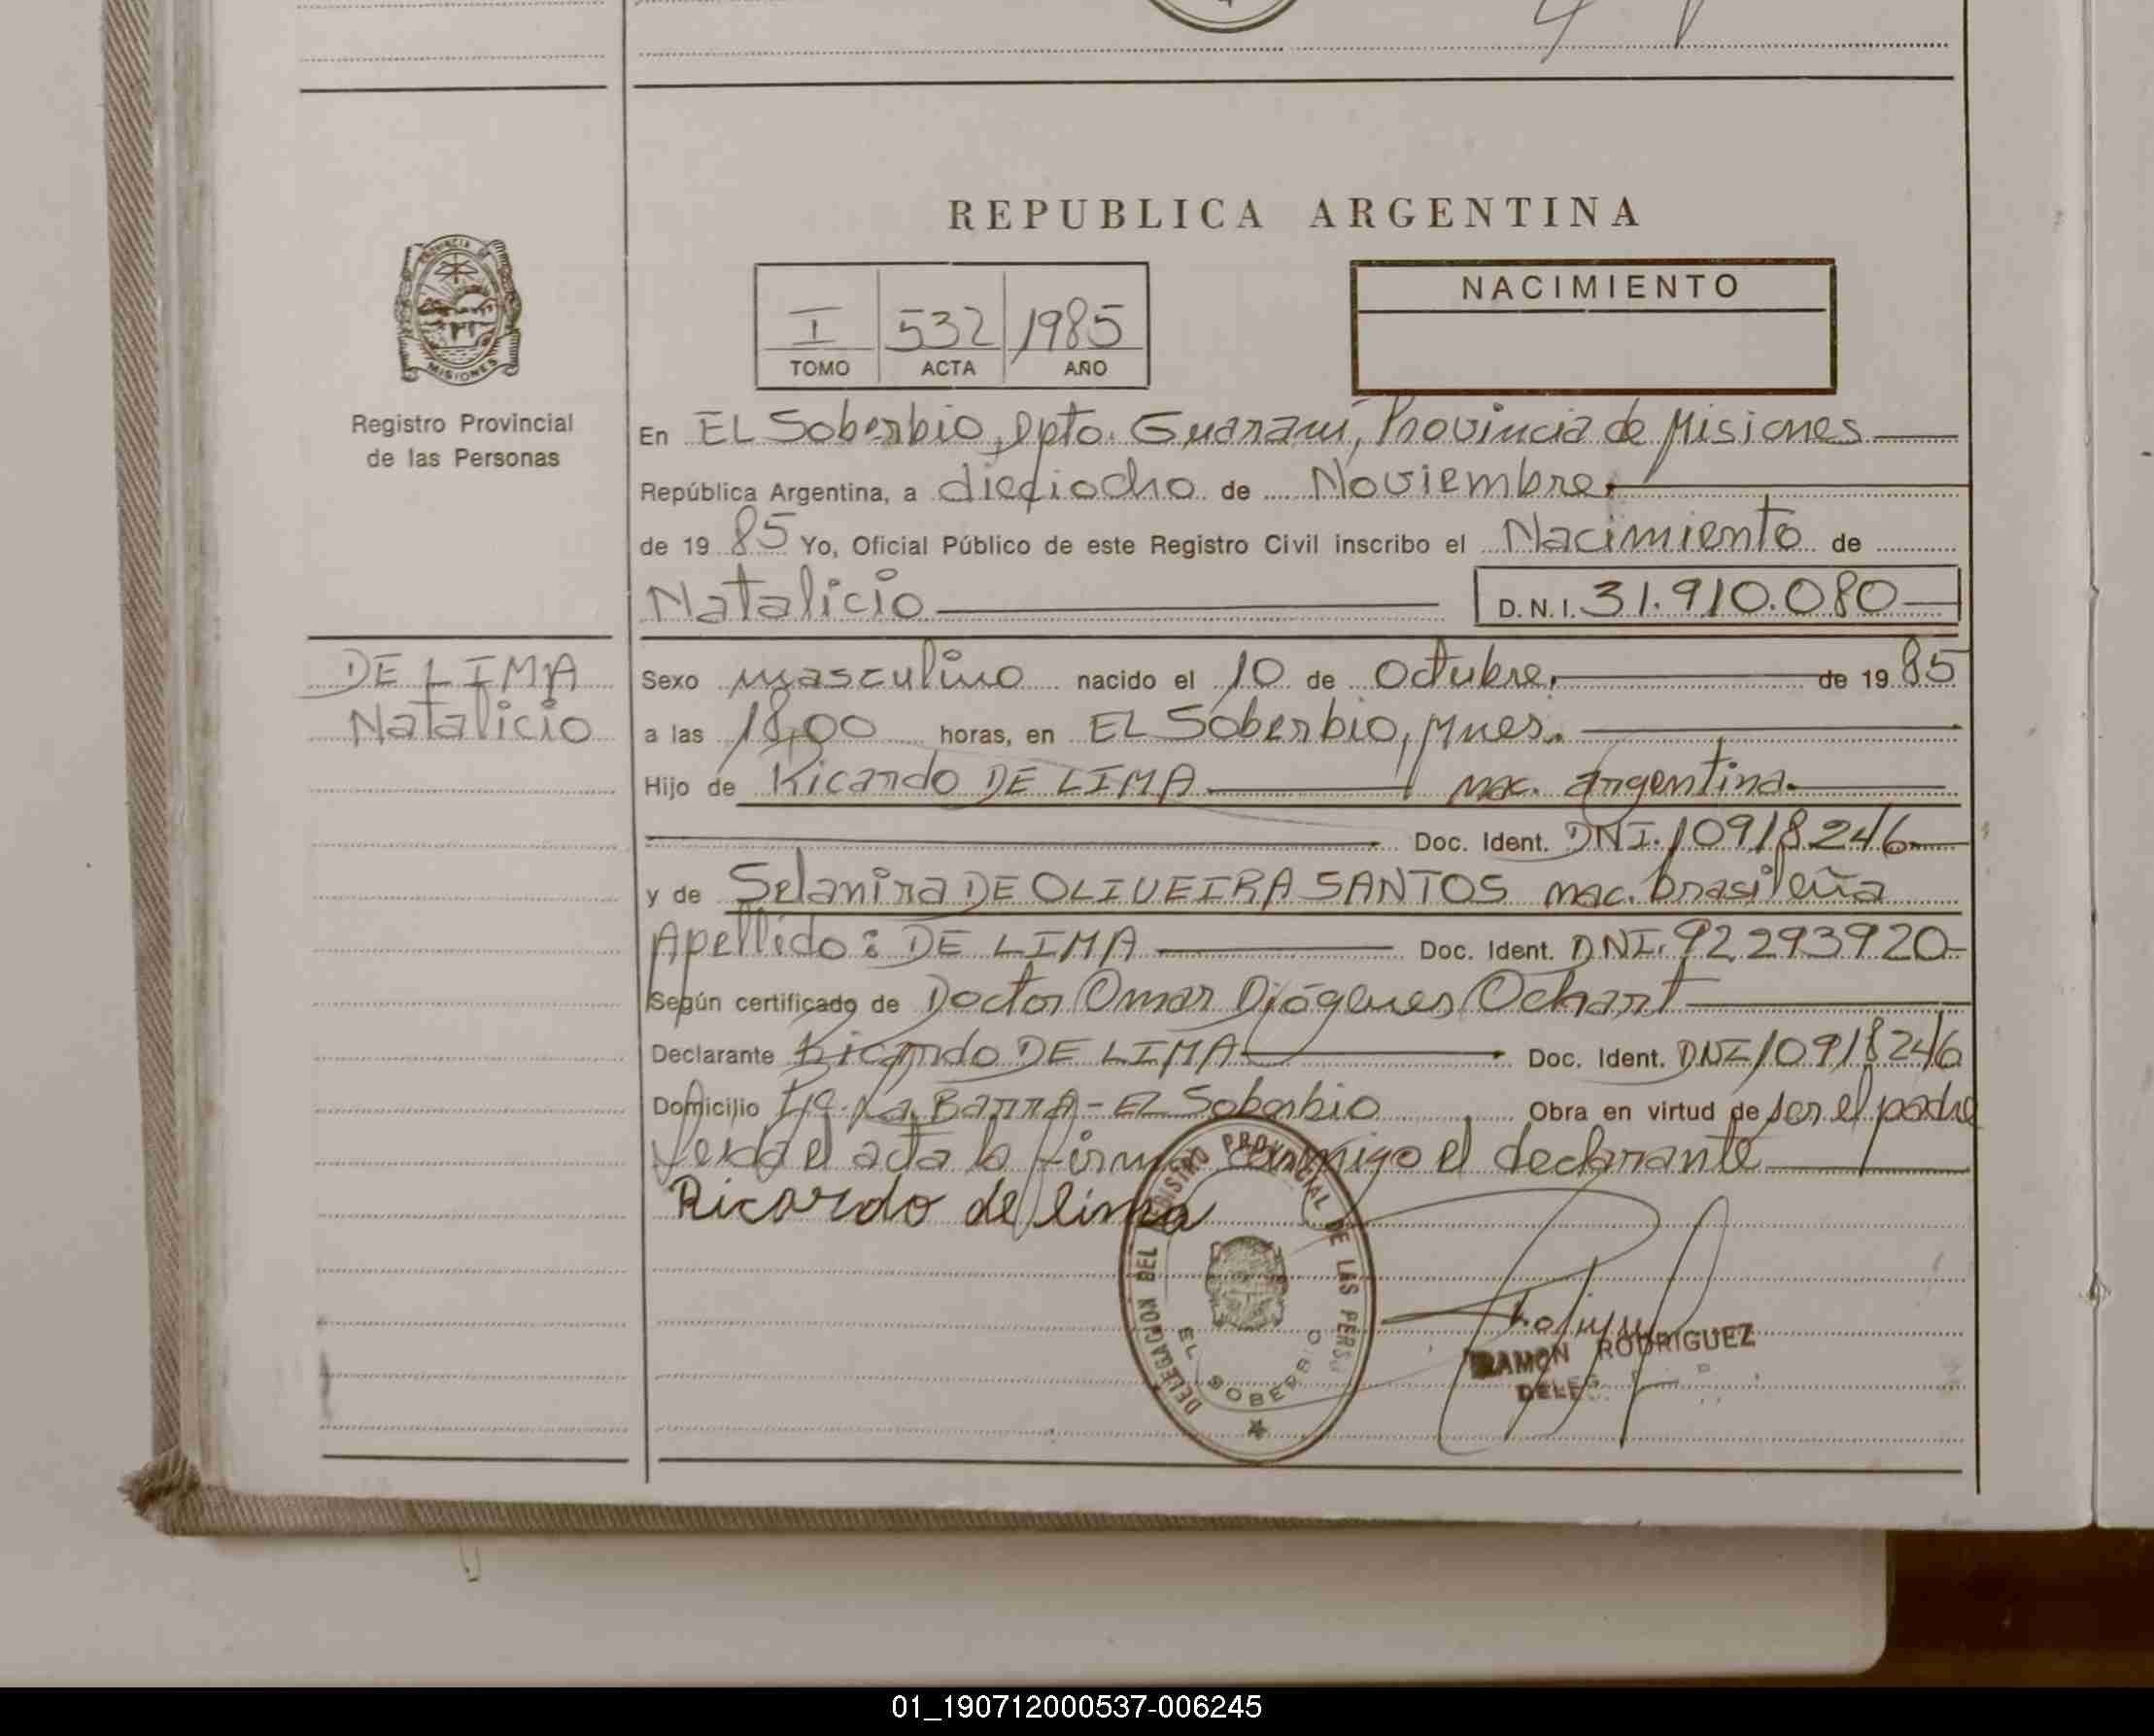 REPUBLICA ARGENTINA
PROVINCIA DE
MISIONES
Registro Provincial
de las Personas
I 532 1985
TOMO ACTA AÑO
NACIMIENTO
En EL Soberbio, Dpto. Guaraní, Provincia de Misiones
República Argentina, a dieciocho de Noviembre.
de 19 85 Yo, Oficial Público de este Registro Civil inscribo el Nacimiento de
Natalicio D.N.I. 31.910.080
DE LIMA
Natalicio
Sexo masculino nacido el 10 de Octubre, de 19 85
a las 18,00 horas, en EL Soberbio, Mnes.
Hijo de Ricardo DE LIMA nac. argentina.
Doc. Ident. DNI. 10918246
y de Selanira DE OLIVEIRA SANTOS nac. brasileña
Apellido: DE LIMA Doc. Ident. DNI. 92.293920
Según certificado de Doctor Omar Diógenes Ochart
Declarante Ricardo DE LIMA Doc. Ident. DNI 10918246
Domicilio La Barra - El Soberbio Obra en virtud de ser el padre
Leida el acta la firma conmigo el declarante
Ricardo de lima
DELEGACION DEL REGISTRO PROVINCIAL DE LAS PERS
EL SOBERBIO
RAMON RODRIGUEZ
DELEG
01_190712000537-006245